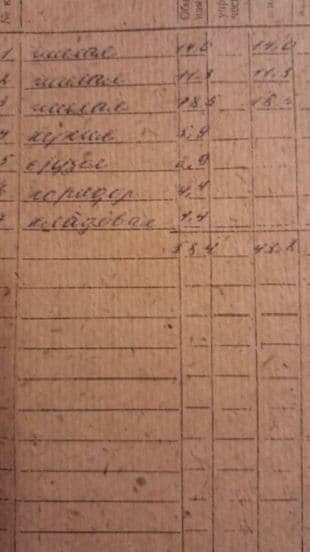 1 жилая 14.0 14.0
2 жилая 11.3 11.3
3 жилая 18.5 18.5
4 кухня 5.9
5 с/узел 2.9
6 коридор 4.4
7 кладовая 1.4
58.4 43.8